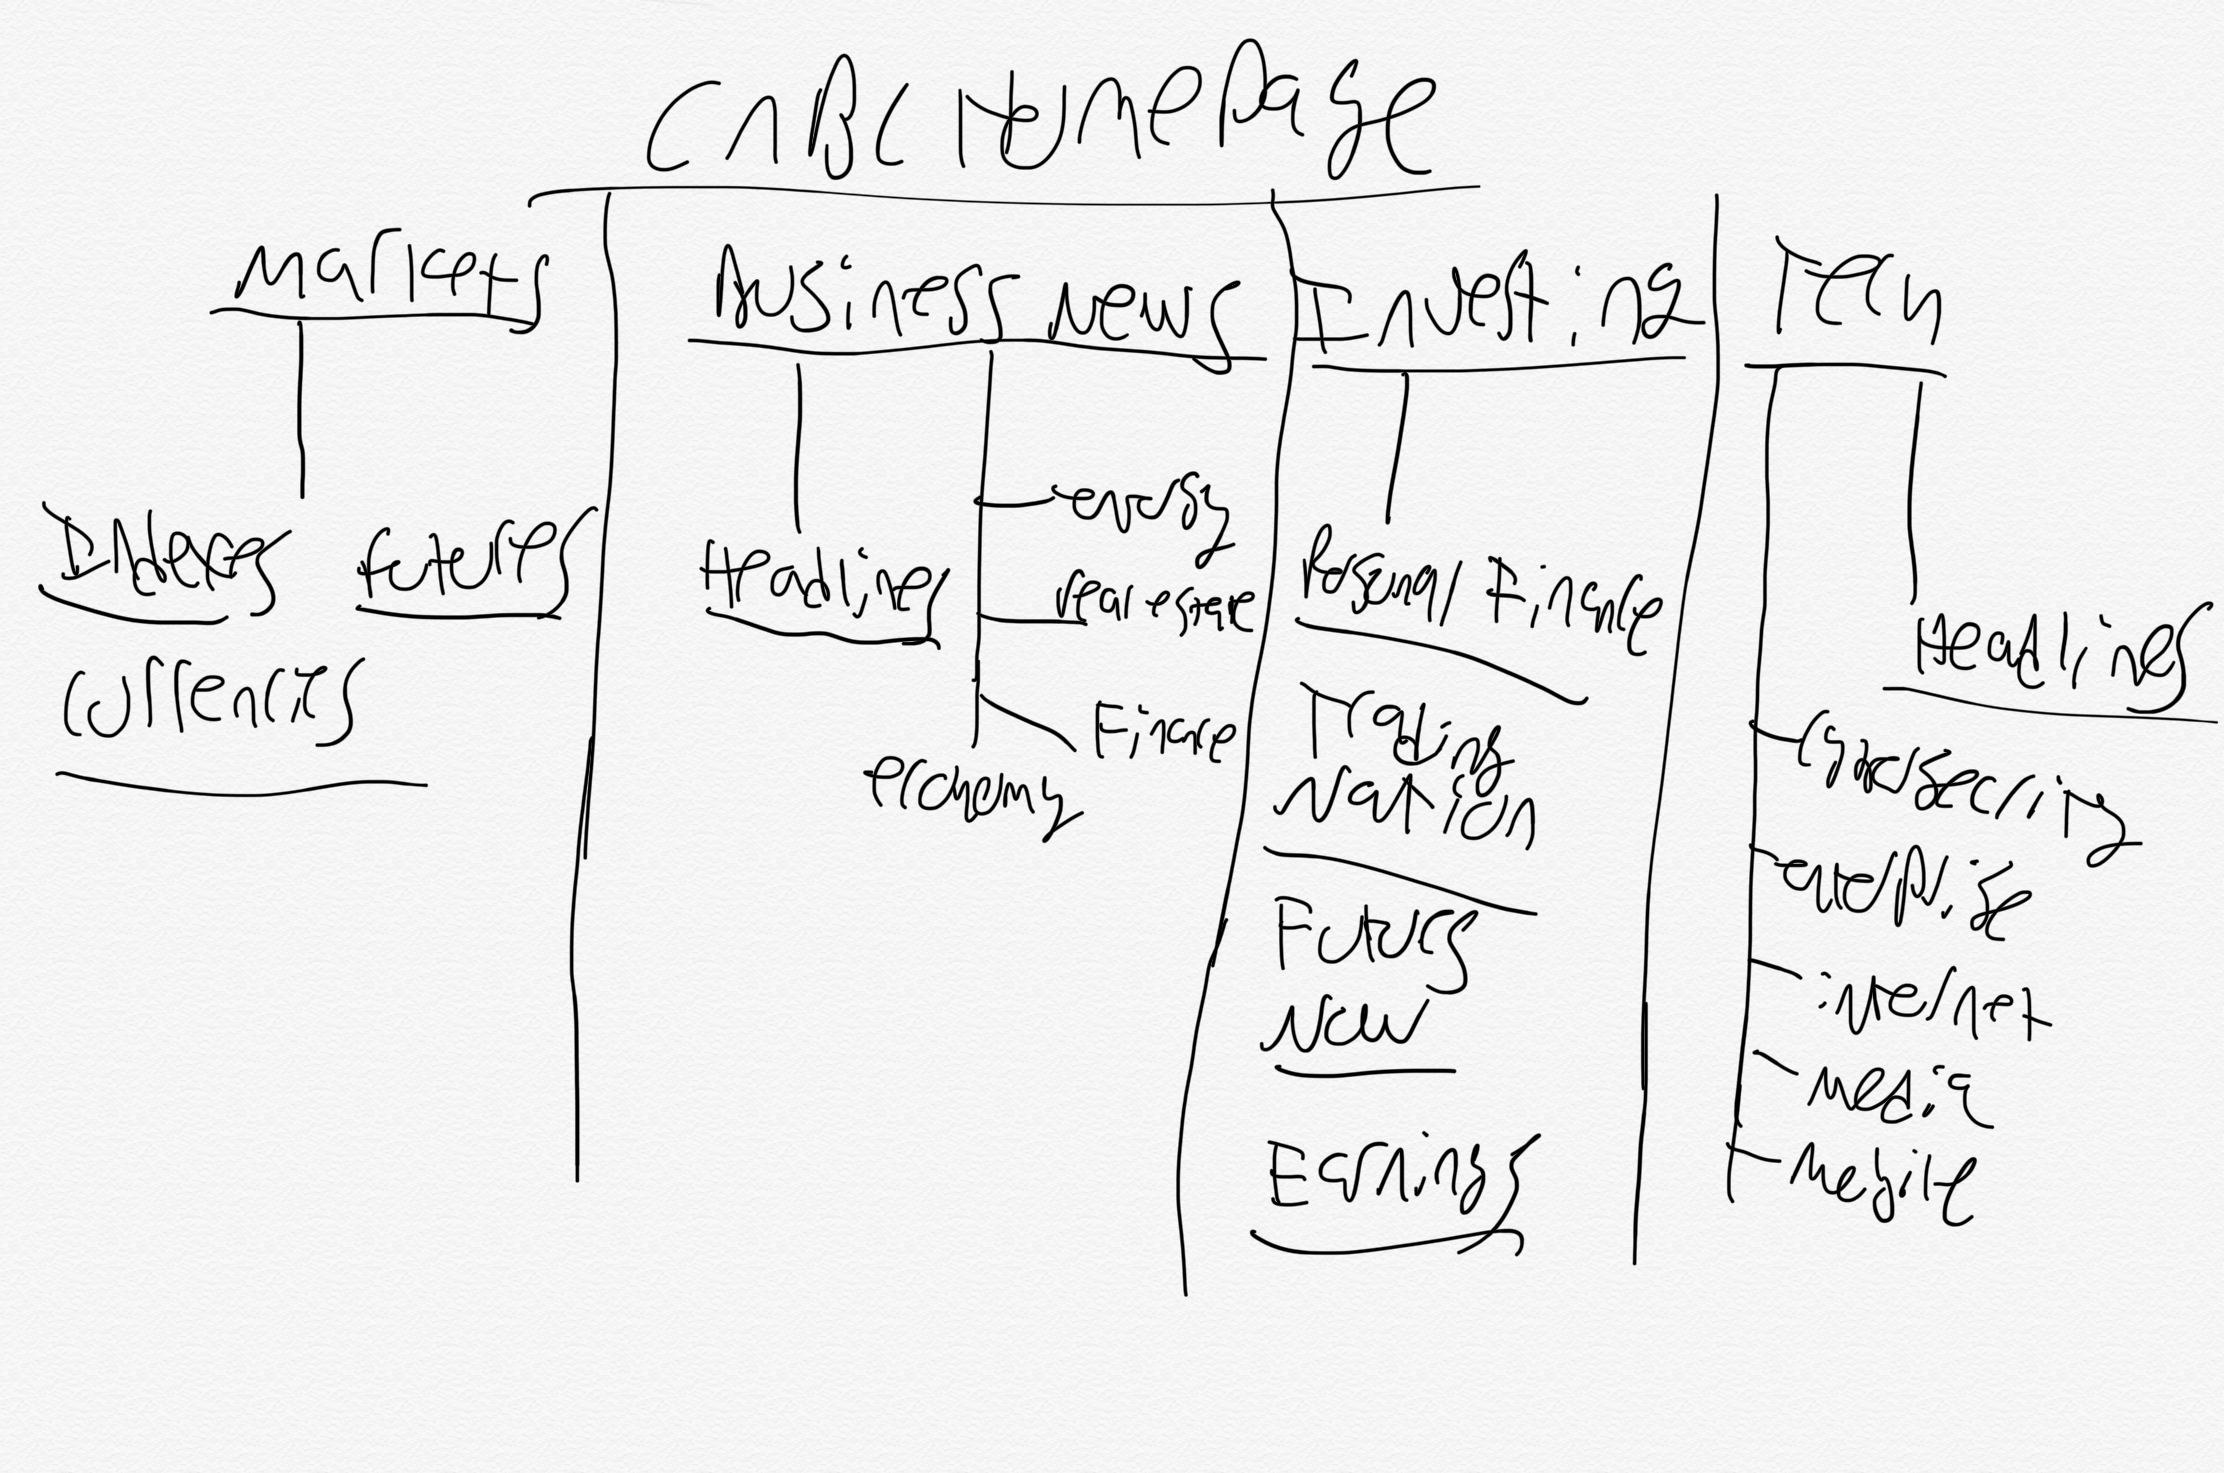 CNBC Homepage
Markets
Indexes
futures
currencies
Business News
Headlines
energy
real estate
Finance
econemy
Investing
Personal Finance
Trading
Nation
Futures
Now
Earnings
Tech
Headlines
Cybersecrity
enterprise
internet
Media
Mobile